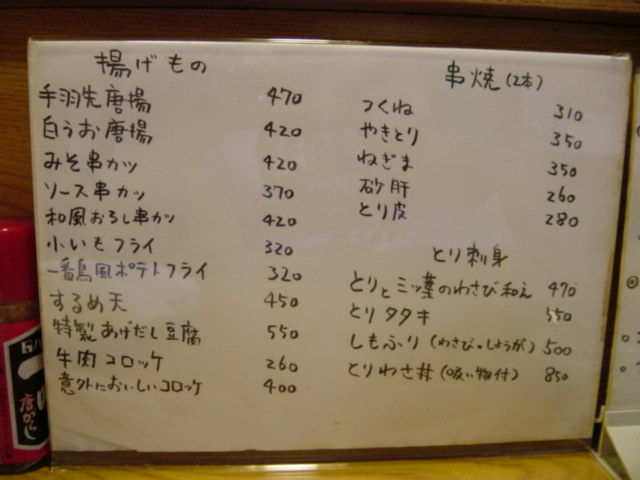 揚げもの
手羽先唐揚 470
白うお唐揚 420
みそ串カツ 420
ソース串カツ 370
和風おろし串カツ 420
小いもフライ 320
一番鳥風ポテトフライ 320
するめ天 450
特製あげだし豆腐 550
牛肉コロッケ 260
意外においしいコロッケ 400
串焼(2本)
つくね 310
やきとり 350
ねぎま 350
砂肝 260
とり皮 280
とり刺身
とりと三ッ葉のわさび和え 470
とりタタキ 550
しもふり(わさび・しょうが) 500
とりわさ丼(吸い物付) 850
唐がらし